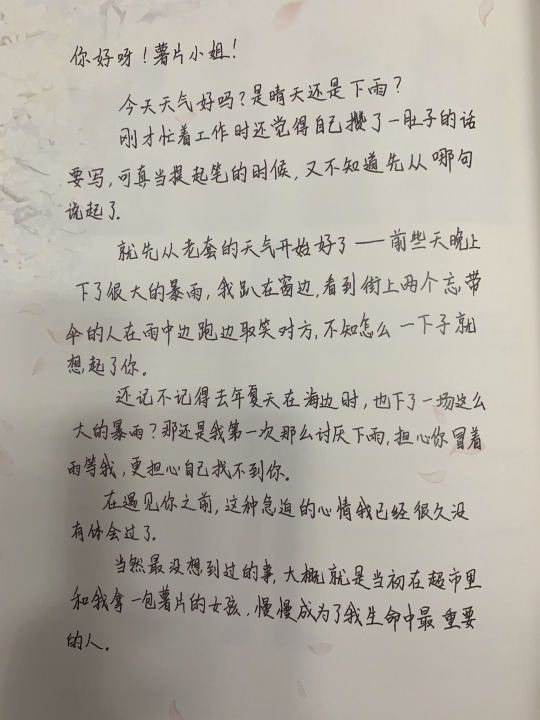 你好呀！薯片小姐！
今天天气好吗？是晴天还是下雨？
刚才忙着工作时还觉得自己攒了一肚子的话
要写，可真当提起笔的时候，又不知道先从哪句
说起了.
就先从老套的天气开始好了——前些天晚上
下了很大的暴雨，我趴在窗边，看到街上两个忘带
伞的人在雨中边跑边取笑对方，不知怎么一下子就
想起了你。
还记不记得去年夏天在海边时，也下了一场这么
大的暴雨？那还是我第一次那么讨厌下雨，担心你冒着
雨等我，更担心自己找不到你。
在遇见你之前，这种急迫的心情我已经很久没
有体会过了.
当然最没想到过的事，大概就是当初在超市里
和我拿一包薯片的女孩，慢慢成为了我生命中最重要
的人。